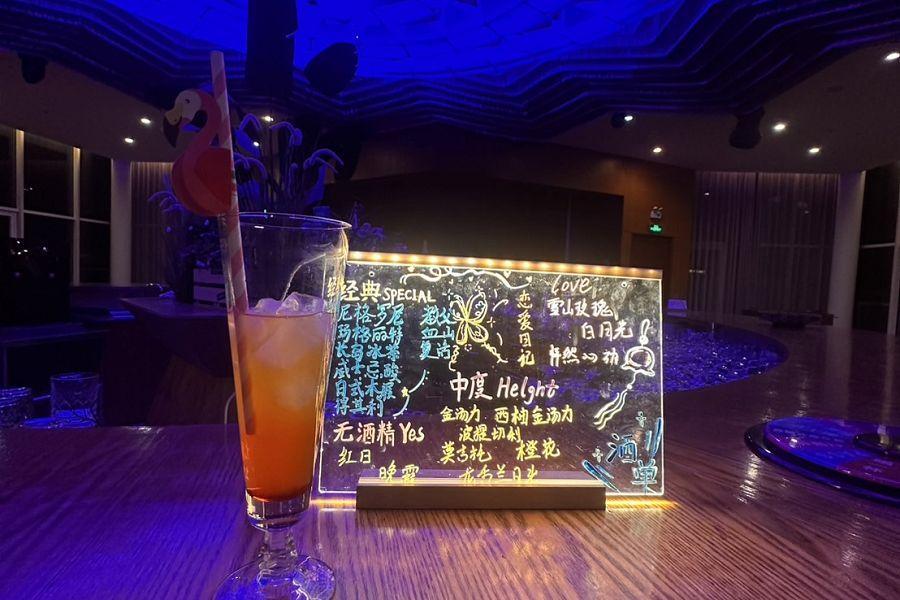 经典 SPECIAL
尼格罗尼
玛格丽特
长岛冰茶
威士忌酸
日式木匠
得其利
血
恋爱日记
love
雪山玫瑰
白月光
怦然心动
中度 HeIght
金汤力 西柚金汤力
菠萝切利
莫吉托 橙花
龙舌兰日出
无酒精 Yes
红日
晚霞
酒单